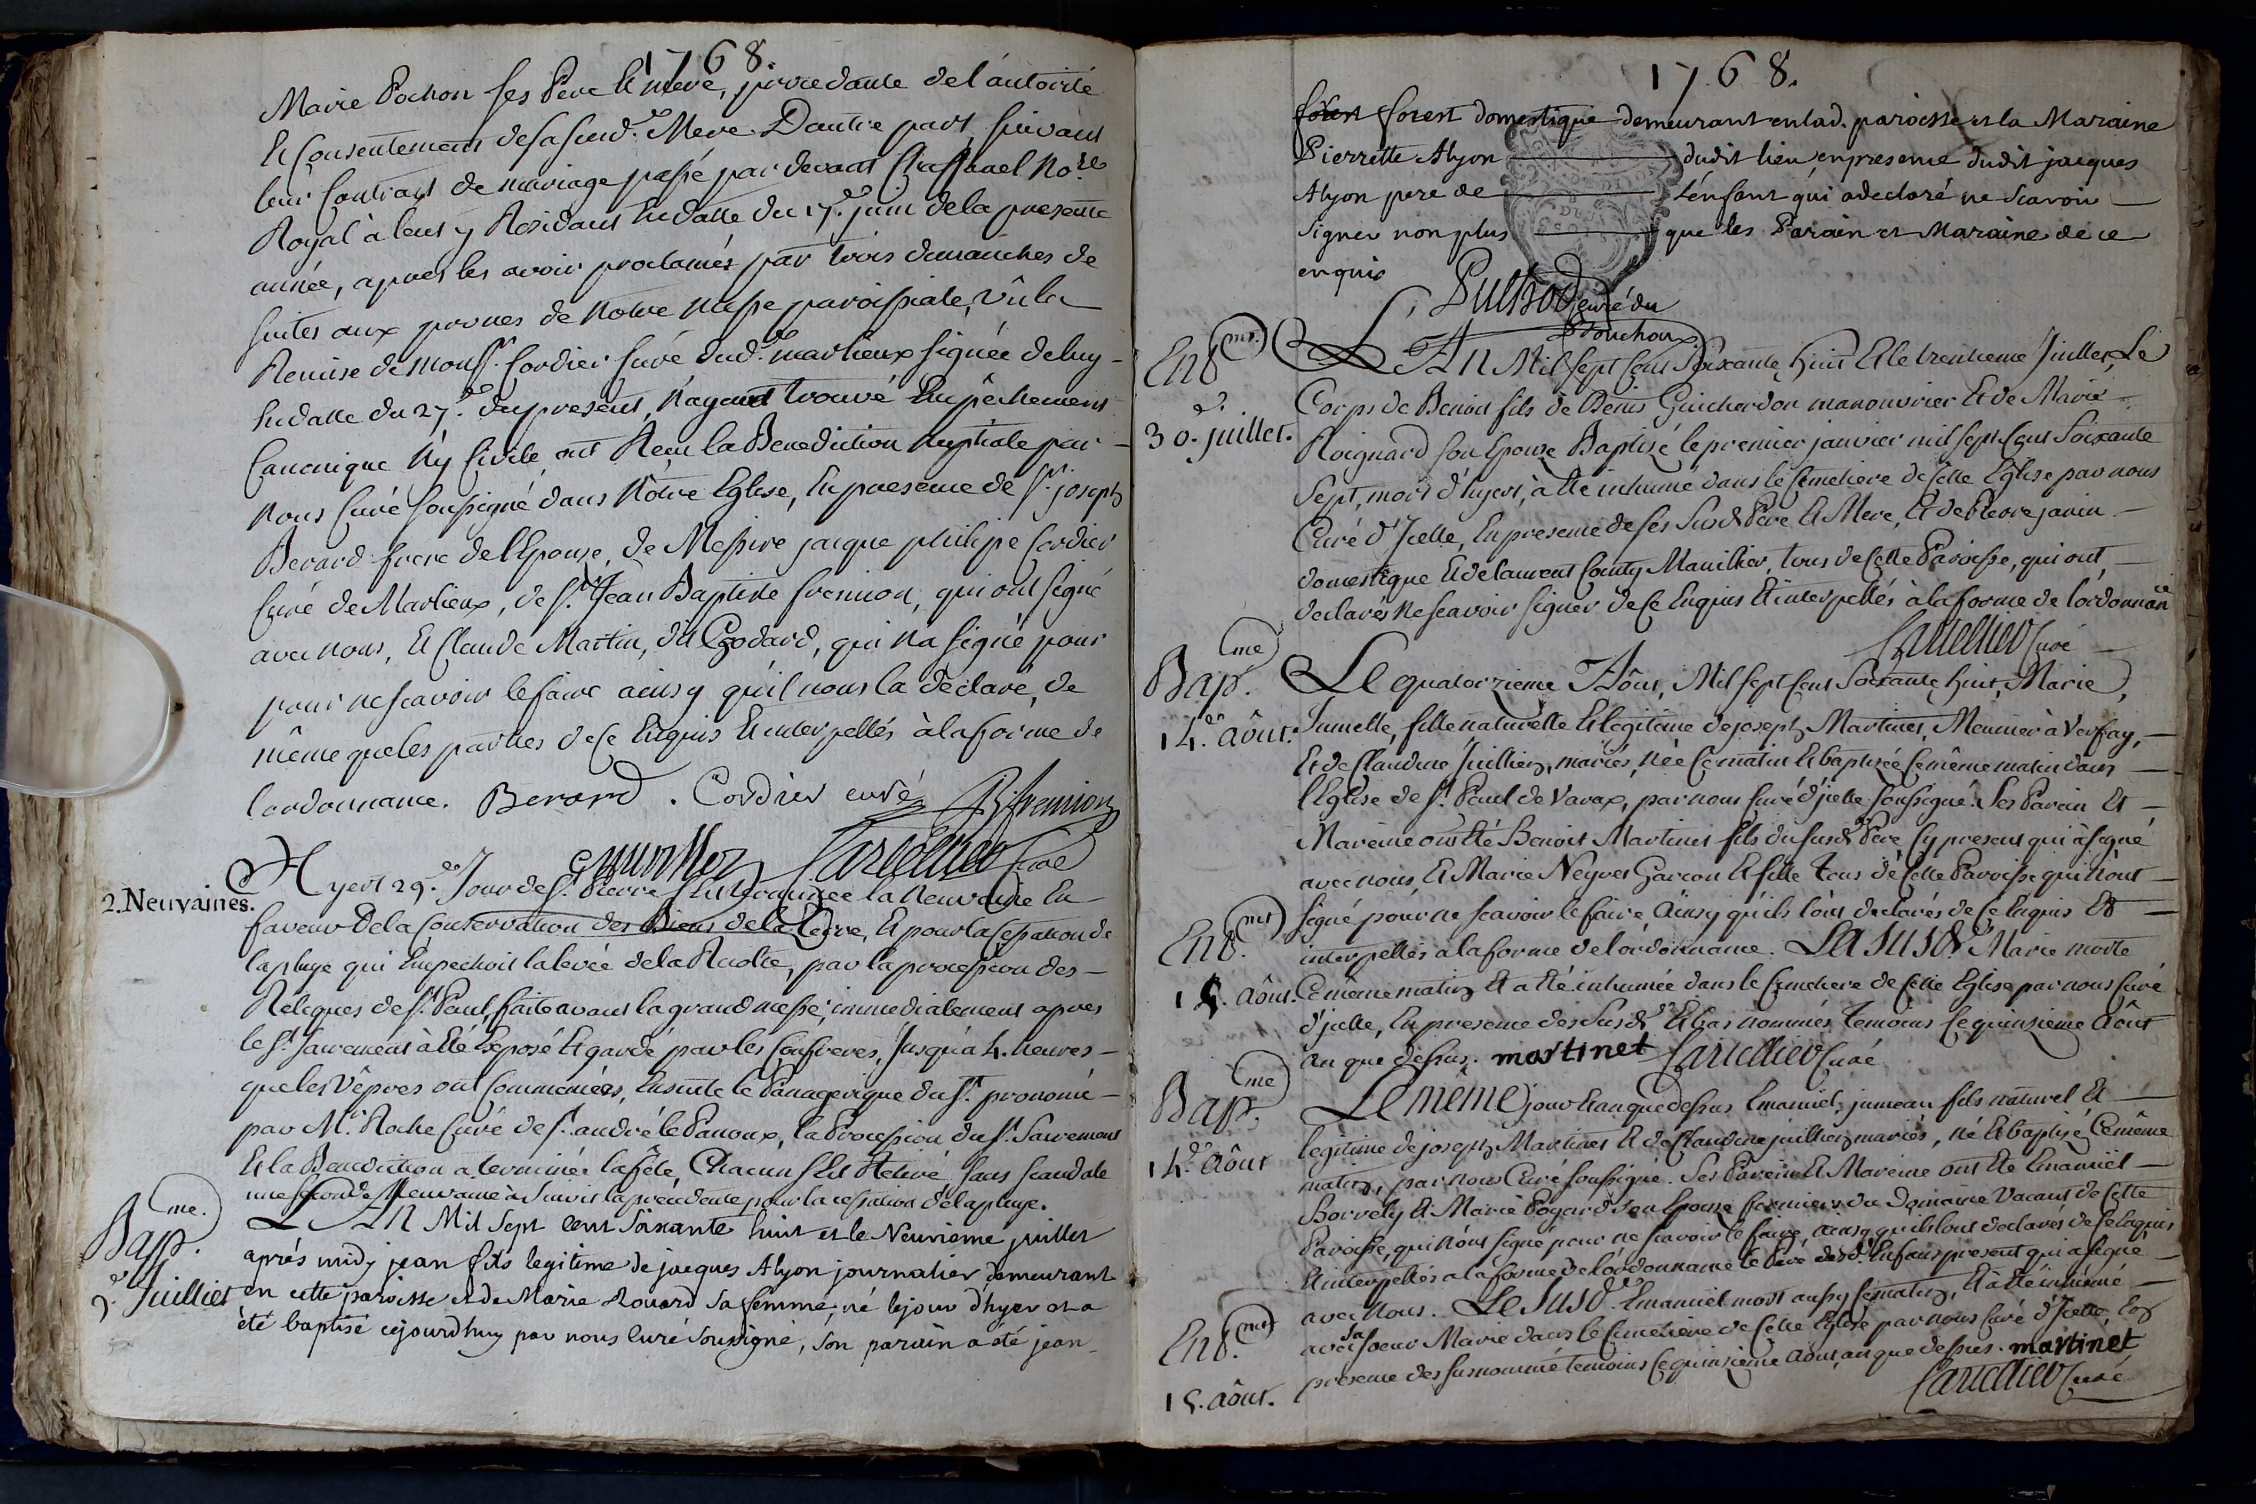 1768.
Marie Pochon ses Pere Et mere, procedante de l'autorité
Et Consentement de sa susd.e Mere. D'autre part, suivant
leur Contract de mariage passé par devant Chassuael No.re
Royal à leut y Residant En datte du 17.e juin de la presente
année, apres les avoir proclamés par trois dimanches de
suites aux prones de Notre Messe paroissiale, vû la
Remise de Mons.r Cordier Curé dud.t marlieux signée de luy
En datte du 27.e du present, N'ayant trouvé Empêchement
Canonique Ny Civile ont Recu la Benediction Nuptiale par
Nous Curé soussigné dans Nôtre Eglise, En presence de S.r joseph
Berard frere de l'Epouse, de Messire jacque philipe Cordier
Curé de Marlieux, de S.r Jean Baptiste fremion, qui ont signé
avec nous, Et Claude Martin, dit Godard, qui Na signé pour
pour ne scavoir le faire ainsy qu'il nous la déclaré, de
même que les parties de ce Enquis Et interpellés à la forme de
l'ordonnance. Berard. Cordier curé B. fremion
Cartellier Curé
2. Neuvaines.
Hyert 29.e Jour de S.t Pierre s'est terminée la Neuvaine En
faveur De la Conservation des Biens de la Terre, Et pour la Cessation de
la pluye qui Empechoit la levée de la Recolte, par la procession des
Reliques de S.t Paul, faite avant la grand messe, immediatement apres
le S.t Sacrement à Eté Exposé Et gardé par les Confreres, Jusqu'à 4. heures
que les Vêpres ont Commencées, Ensuite le Panagerique du S.t prononcé
par M.r Roche Curé de S.t andré le Panoux, la Procession du S.t Sacrement
Et la Benediction a terminée la fête, Chacun s'est Retiré sans scandale
une seconde Neuvaine à Suivit la précédente pour la cessation de la pluye.
Bap.me
9.e Juilliet
L'An Mil Sept cent soixante huit et le Neuvieme juillet
aprés midy jean fils legitime de jacques Alyon journalier demeurant
en cette paroisse et de Marie Rouard sa femme, né le jour d'hyer et a
été baptisé cejourdhuy par nous Curé Soussigné, son parain a été jean
1768.
forest forest domestique demeurant en lad. paroisse et la Maraine
Pierrette Alyon dudit lieu en presence dudit jacques
Alyon pere de L'enfant qui a declaré ne scavoir
signer non plus que les Parain et Maraine de ce
enquis
Puthod curé du
Plouchoux
Ent.mt
30.e juillet.
L'An Mil sept Cent Soixante, huit Et le trentieme Juillet, Le
Corps de Benoit fils de Denis Guicherdon manouvrier Et de Marie
Roignard son Epouse Baptisé le premier janvier mil sept Cent Soixante
Sept, mort d'hyert, à Eté inhumé dans le Cimetiere de Cette Eglise par nous
Curé d'Icelle, En presence de ses Susd.s Pere Et Mere, Et de Pierre janin
domestique Et de laurent Conty Manillier, tous de Cette Paroisse, qui ont
declarés Ne scavoir signer de Ce Enquis Et interpellés à la forme de l'ordonnance
Cartellier Curé
Bap.me
14.e Aôut.
Le quatorzieme Aôut, Mil sept Cent Soixante, huit, Marie,
Jumelle, fille naturelle Et legitime de joseph Martinet, Meunier à Verfay,
Et de Claudine Juillien, mariés, née Ce matin Et baptisée Ce même matin dans
l'Eglise de S.t Paul de Varax, par nous Curé d'jcelle soussigné. Ses Parein Et
Mareine ont Eté Benoit Martinet fils du susd.t Pere Cy present qui à signé
avec nous, Et Marie Neyret Garcon Et fille tous de Cette Paroisse qui n'ont
signé pour ne scavoir le faire Ainsy qu'ils l'ont declarés de Ce Enquis Et
Ent.mt
15. Aôut.
interpellés a la forme de l'ordonnance. La Susd.e Marie morte
Ce même matin Et a Eté inhumée dans le Cimetiere de Cette Eglise par nous Curé
d'jcelle, En presence des Susd.s Et bas nommés Temoins le quinsieme Aôut
an que dessus. martinet Cartellier Curé
Bap.me
14.e Aôut
Le même jour Et an que dessus Emanuel, jumeau fils naturel Et
legitime de joseph Martinet Et de Claudine juillien mariés, né Et baptisé Ce même
matin, par nous Curé soussigné. Ses Parein Et Mareine ont Eté Emanuel
Borrely Et Marie Poyard son Epouse fermiers du Domaine Vacant de Cette
Paroisse, qui n'ont signé pour ne scavoir le faire, ainsy qu'ils l'ont declarés de Ce Enquis
Et interpellés a la forme de l'ordonnance le Pere desd. Enfans present qui a signé
Ent.mt
15. Aôut.
avec Nous. Le Susd.t Emanuel mort aussy Ce matin, Et à Eté inhumé
avec sa soeur Marie dans le Cimetiere de Cette Eglise par nous Curé d'Jcelle, En
presence des susnommé temoins le quinsieme Aôut, an que dessus. martinet
Cartellier Curé